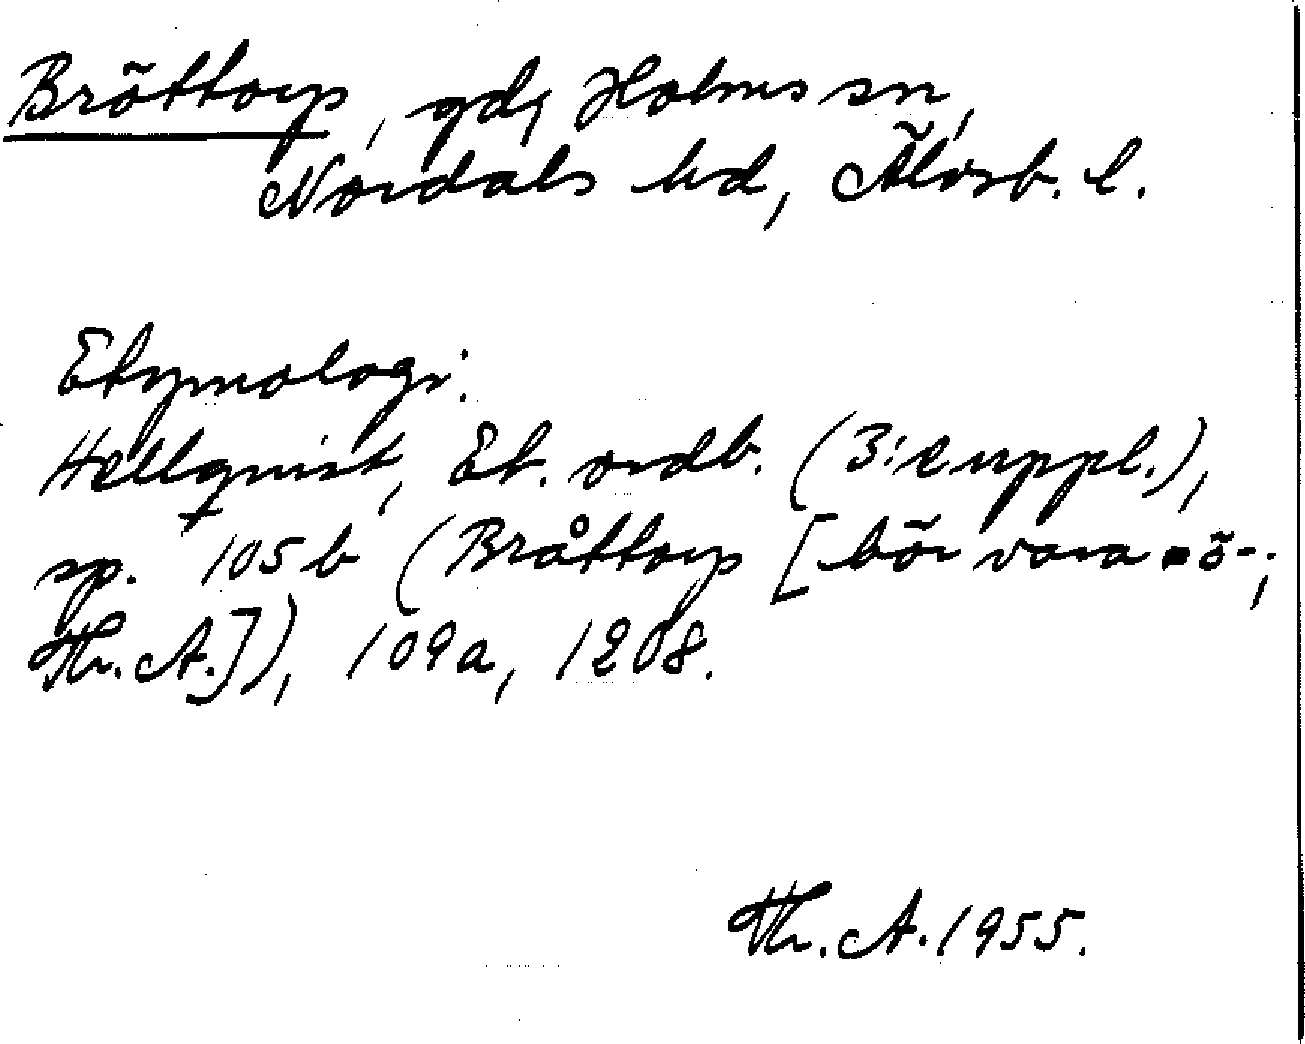 Bröttorp, gdg Holms sn,
Nordals hd, Älvsb. l.
Etymologi:
Hellquist, Et. ordb. (3:e uppl.),
sp. 105 b (Bråttorp [bör vara -ö-;
Th. A.]), 109a, 1208.
Th. A. 1955.